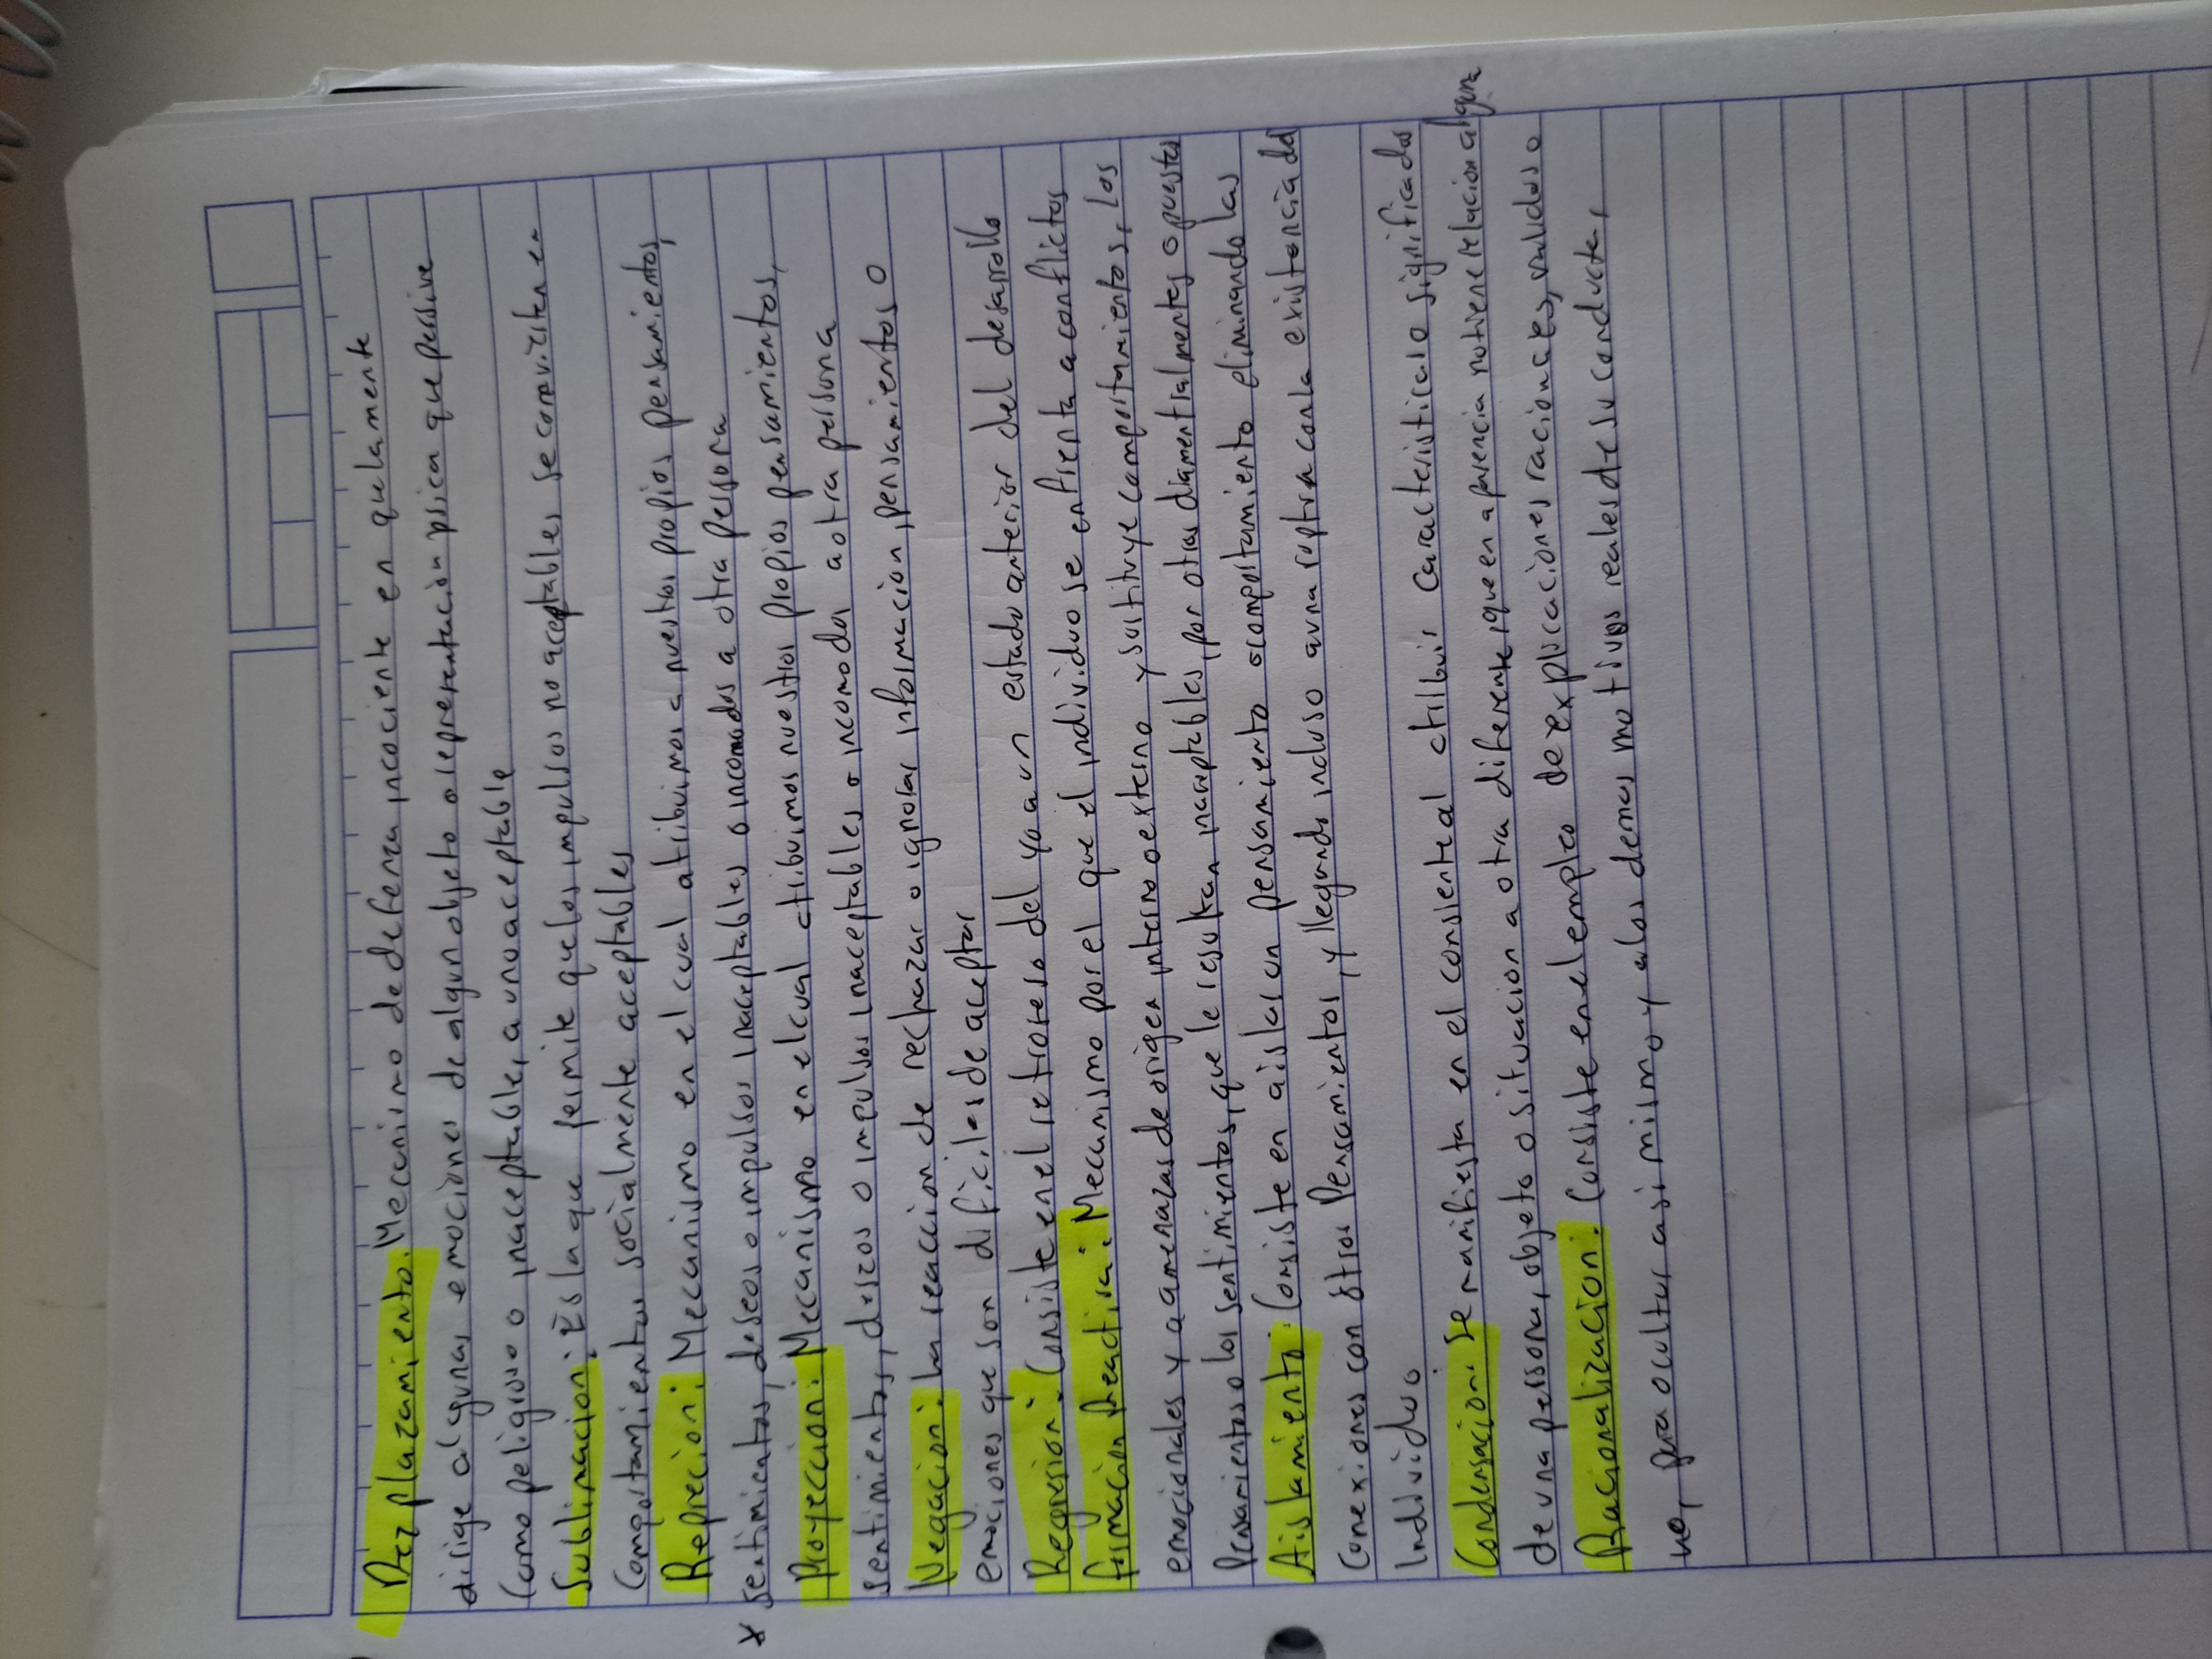 Dezplazamiento. Mecanismo de defensa incociente en que la mente
dirige algunas emociones de algun objeto o representacion psica que persive
como peligroso o inaceptable, a uno aceptable
Sublimacion: Es la que permite que los impulsos no aceptables, se convierten en
comportamientos socialmente aceptables
Reprecion: Mecanismo en el cual atribuimos a nuestros propios pensamientos,
* sentimientos, deseos o impulsos inaceptables o incomodos a otra persona
Proyeccion: Mecanismo en el cual atribuimos nuestros propios pensamientos,
sentimientos, deseos o impulsos inaceptables o incomodos a otra persona
Negacion: La reaccion de rechazar o ignorar informacion, pensamientos o
emociones que son dificiles de aceptar
Regresion: Consiste en el retroreso del yo a un estado anterior del desarrollo
formacion Reactiva: Mecanismo por el que el individuo se enfrenta a conflictos
emocionales y a amenazas de origen interno o externo y sustituye comportamientos, los
Pensamientos o los sentimientos, que le resultan inaceptables, por otros diamentralmentes opuestos
Aislamiento: Consiste en aislar un pensamiento o comportamiento eliminando las
conexiones con otros Pensamientos, y llegando incluso a una ruptura con la existencia del
Individuo
Condensacion: Se manifiesta en el consiente al atribuir caracteristica o significados
de una persona, objeto o situacion a otra diferente, que en apariencia no tiene relacion alguna
Racionalizacion: Consiste en el empleo de explicaciones racionales, validas o
no, para ocultar a si mismo y a los demas motivos reales de su conducta,